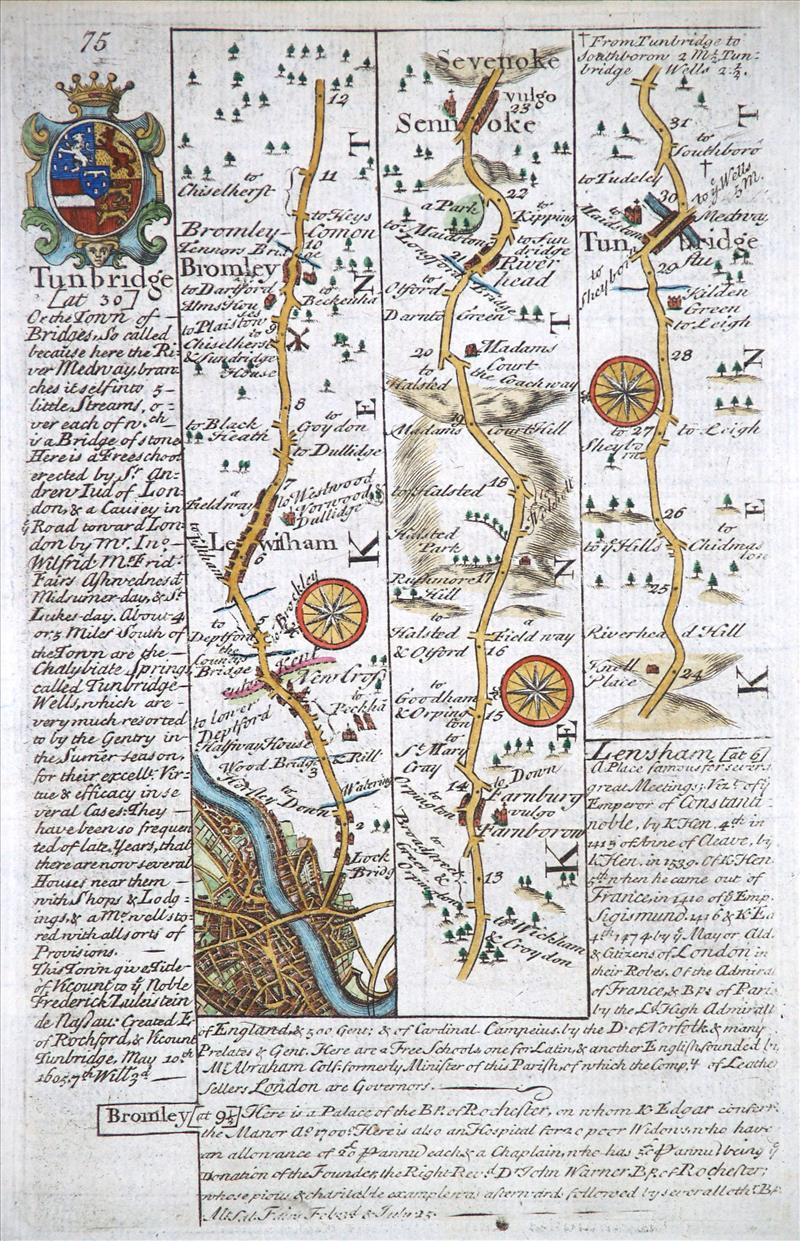 75
Tunbridge
[at 30]
Or the Town of
Bridges, So called
because here the Ri-
ver Medway bran-
ches it self into 5
little Streams, o-
ver each of wch.
is a Bridge of stone
Here is a Free school
erected by Sr. An-
drew Iud of Lon-
don, & a Causey in
ye Road toward Lon-
don by Mr. Ino.
Wilfrid. Mt. Frid.
Fairs Ashwednesd:
Midsumer-day, & St.
Lukes-day. About 4
or 5 Miles South of
the Town are the
Chalybiate Springs
called Tunbridge-
Wells, which are
very much resorted
to by the Gentry in
the Sumer season,
for their excellt. Vir-
tue & efficacy in se
veral Cases: They
have been so frequen
ted of late Years, that
there are now several
Houses near them
with Shops & Lodg-
ings, & a Mt. well sto-
red with all sorts of
Provisions.
This Town give Title
of Vicount to ye Noble
Frederick Zulestein
de Nassau: Created E
of Rochford, & Vicount
Tunbridge, May 10th
1695 7th Willm 3d
12
K E N T
to Chiselherst
11
to Heys
Bromley Comon
Lennors Bridge
10
Bromley
to Dartford
to Beckenha
Alms Houses
to Plaistow
9
Chiselherst
& Sundridge
House
8
to Black Heath
to Croydon
to Dullidge
7
a Fieldway
to Westwood
Norwood &
Dullidge
Lewisham
6
to Eltham
to Deptford
5
to Brockley
the County Bridge
Kent
New Cross
to Peckha
to lower Deptford
Halfway House
Wood Bridge & Rill
3
Horsley Down
Watering
2
Lock Bridg
Sevenoke
vulgo
23
Sennoke
22
a Park
to Kipping
to Maidstone
to Sundridge
Longford Bridge
21
River head
to Otford
Darnto
Green
20
Madams
Court
to Halsted
the Coachway
19
Madams Court Hill
K E N T
to Halsted
18
Halsted Park
Rushmore Hill
17
to Halsted & Otford
a Field way
16
to Goodham
& Orpington
15
to St. Mary
Cray
to Down
14
Farnburg
vulgo
Farnborow
Orpington
Broadstreet
Green &
Orpington
13
to Wickham
& Croydon
† From Tunbridge to
Southborow 2 M½ Tun-
bridge Wells 2½.
31
to Southboro
†
to Tudeley
30
to ye Wells
5 M.
to Hadlam
Medway
Tunbridge
flu
29
to Sheyborn
Kilden Green
to Leigh
28
27
to Sheyborn
to Leigh
K E N T
26
to ye Hills
to Chidmas
ton
25
Riverhead Hill
Knoll Place
24
Lewsham [at 6]
A Place famous for several
great Meetings; Vizt. of ye
Emperor of Constanti-
noble, by K. Hen. 4th in
1413 of Anne of Cleave, by
K. Hen. in 1539. Of K. Hen.
5th when he came out of
France, in 1410 of ye Emp.
Sigismund. 1416 & K. Ed
4th 1474 by ye Mayor Ald.
& Citizens of London in
their Robes. Of the Admiral
of France, & Bp. of Paris
by the Ld. High Admirall
of England, & 500 Gent: & of Cardinal Campeius, by the D. of Norfolk & many
Prelates & Gent. Here are 2 Free Schools one for Latin, & another English, founded by
Mr. Abraham Colf, formerly Minister of this Parish, of which the Comp.y of Leather
sellers London are Governors.
Bromley [at 9½] Here is a Palace of the Bp. of Rochester, on whom K. Edgar conferr
the Manor Ao. 700. Here is also an Hospital for 20 poor Widows, who have
an allowance of 20£ p annu each, & a Chaplain, who has 50£ p annu being ye
Donation of the Founder, the Right Revd. Dr. John Warner, Bp. of Rochester;
whose pious & charitable example was afterwards followed by severall othr. Bps.
Mt. Sat. Fairs Feb. 3d & July 25